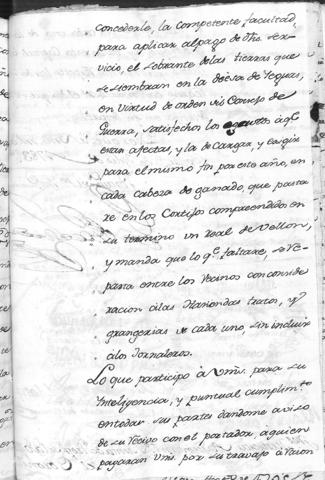 concederle, la competente facultad,
para aplicar al pago de dho. ser-
vicio, el sobrante de las tierras que
se siembran en la deesa de Yeguas,
en virtud de orden del Consejo de
Guerra, satisfechos los gastos à qe.
estan afectas, y la de cargar, y exigir
para el mismo fin por este año, en
cada cabeza de ganado, que pasta
re en los Cortijos comprendidos en
su termino un real de Vellon,
y manda que lo qe. faltare, se re-
parta entre los vecinos con conside
racion à las Haciendas tratos, y
grangerias de cada uno, sin incluir
à los Jornaleros.
Lo que participo à Vms. para su
Inteligencia, y puntual cumplimto.
en todas sus partes dandome aviso
de su recivo con el portador, a quien
pagaran Vms. por su travajo à razon